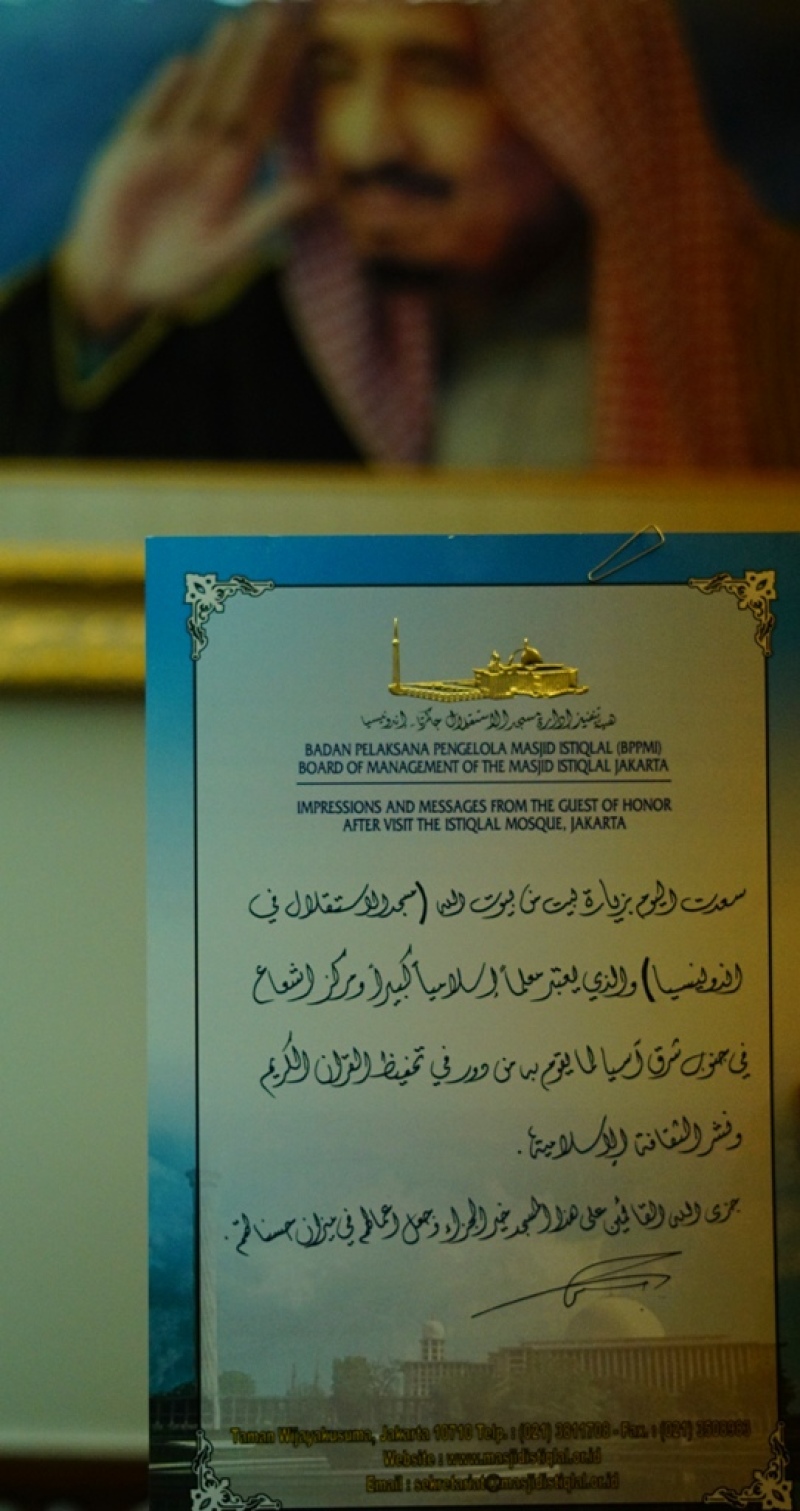 هيئة تنفيذ إدارة مسجد الاستقلال جاكرتا - إندونيسيا
BADAN PELAKSANA PENGELOLA MASJID ISTIQLAL (BPPMI)
BOARD OF MANAGEMENT OF THE MASJID ISTIQLAL JAKARTA
IMPRESSIONS AND MESSAGES FROM THE GUEST OF HONOR
AFTER VISIT THE ISTIQLAL MOSQUE, JAKARTA
سعدت اليوم بزيارة بيت من بيوت الله (مسجد الاستقلال في
اندونيسيا) والذي يعتبر معلماً إسلامياً كبيراً ومركز اشعاع
في جنوب شرق آسيا لما يقوم به من دور في تحفيظ القرآن الكريم
ونشر الثقافة الإسلامية.
جزى الله القائمين على هذا المسجد خير الجزاء وجعل أعمالهم في ميزان حسناتهم.
Taman Wijayakusuma, Jakarta 10710 Telp. : (021) 3811708 - Fax. : (021)
Website : www.masjidistiqlal.or.id
Email : sekretariat@masjidistiqlal.or.id